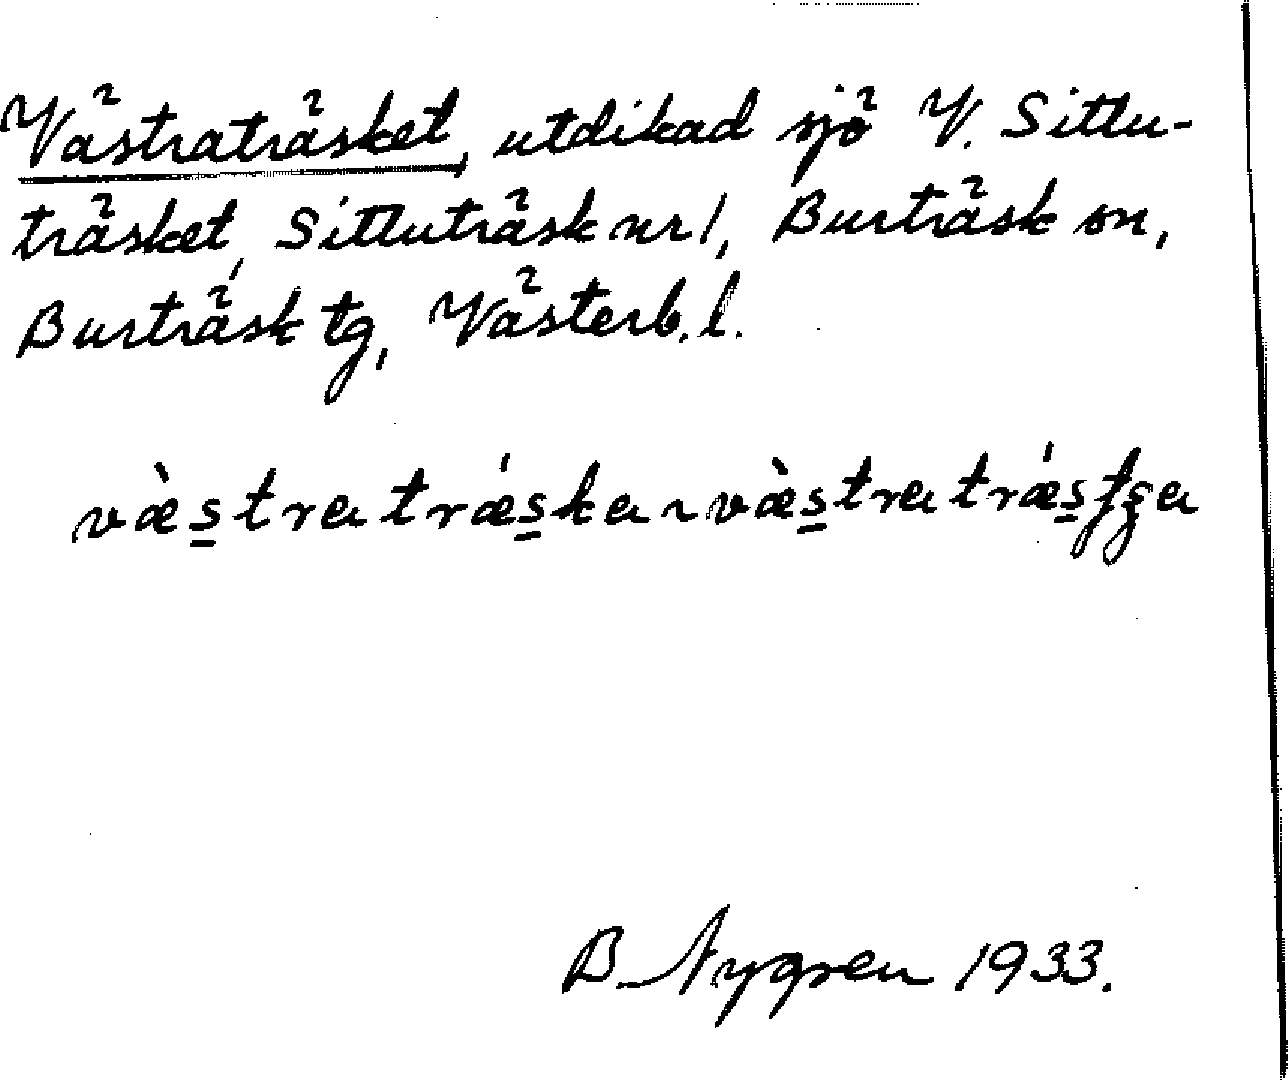 Västraträsket, utdikad sjö V. Sittu-
träsket, Sittuträsk nr 1, Burträsk sn,
Burträsk tg, Västerb. l.
væ̀s̲tra trǽs̲ka ~ væ̀s̲tra trǽs̲ʃʒa
B. Nygren 1933.